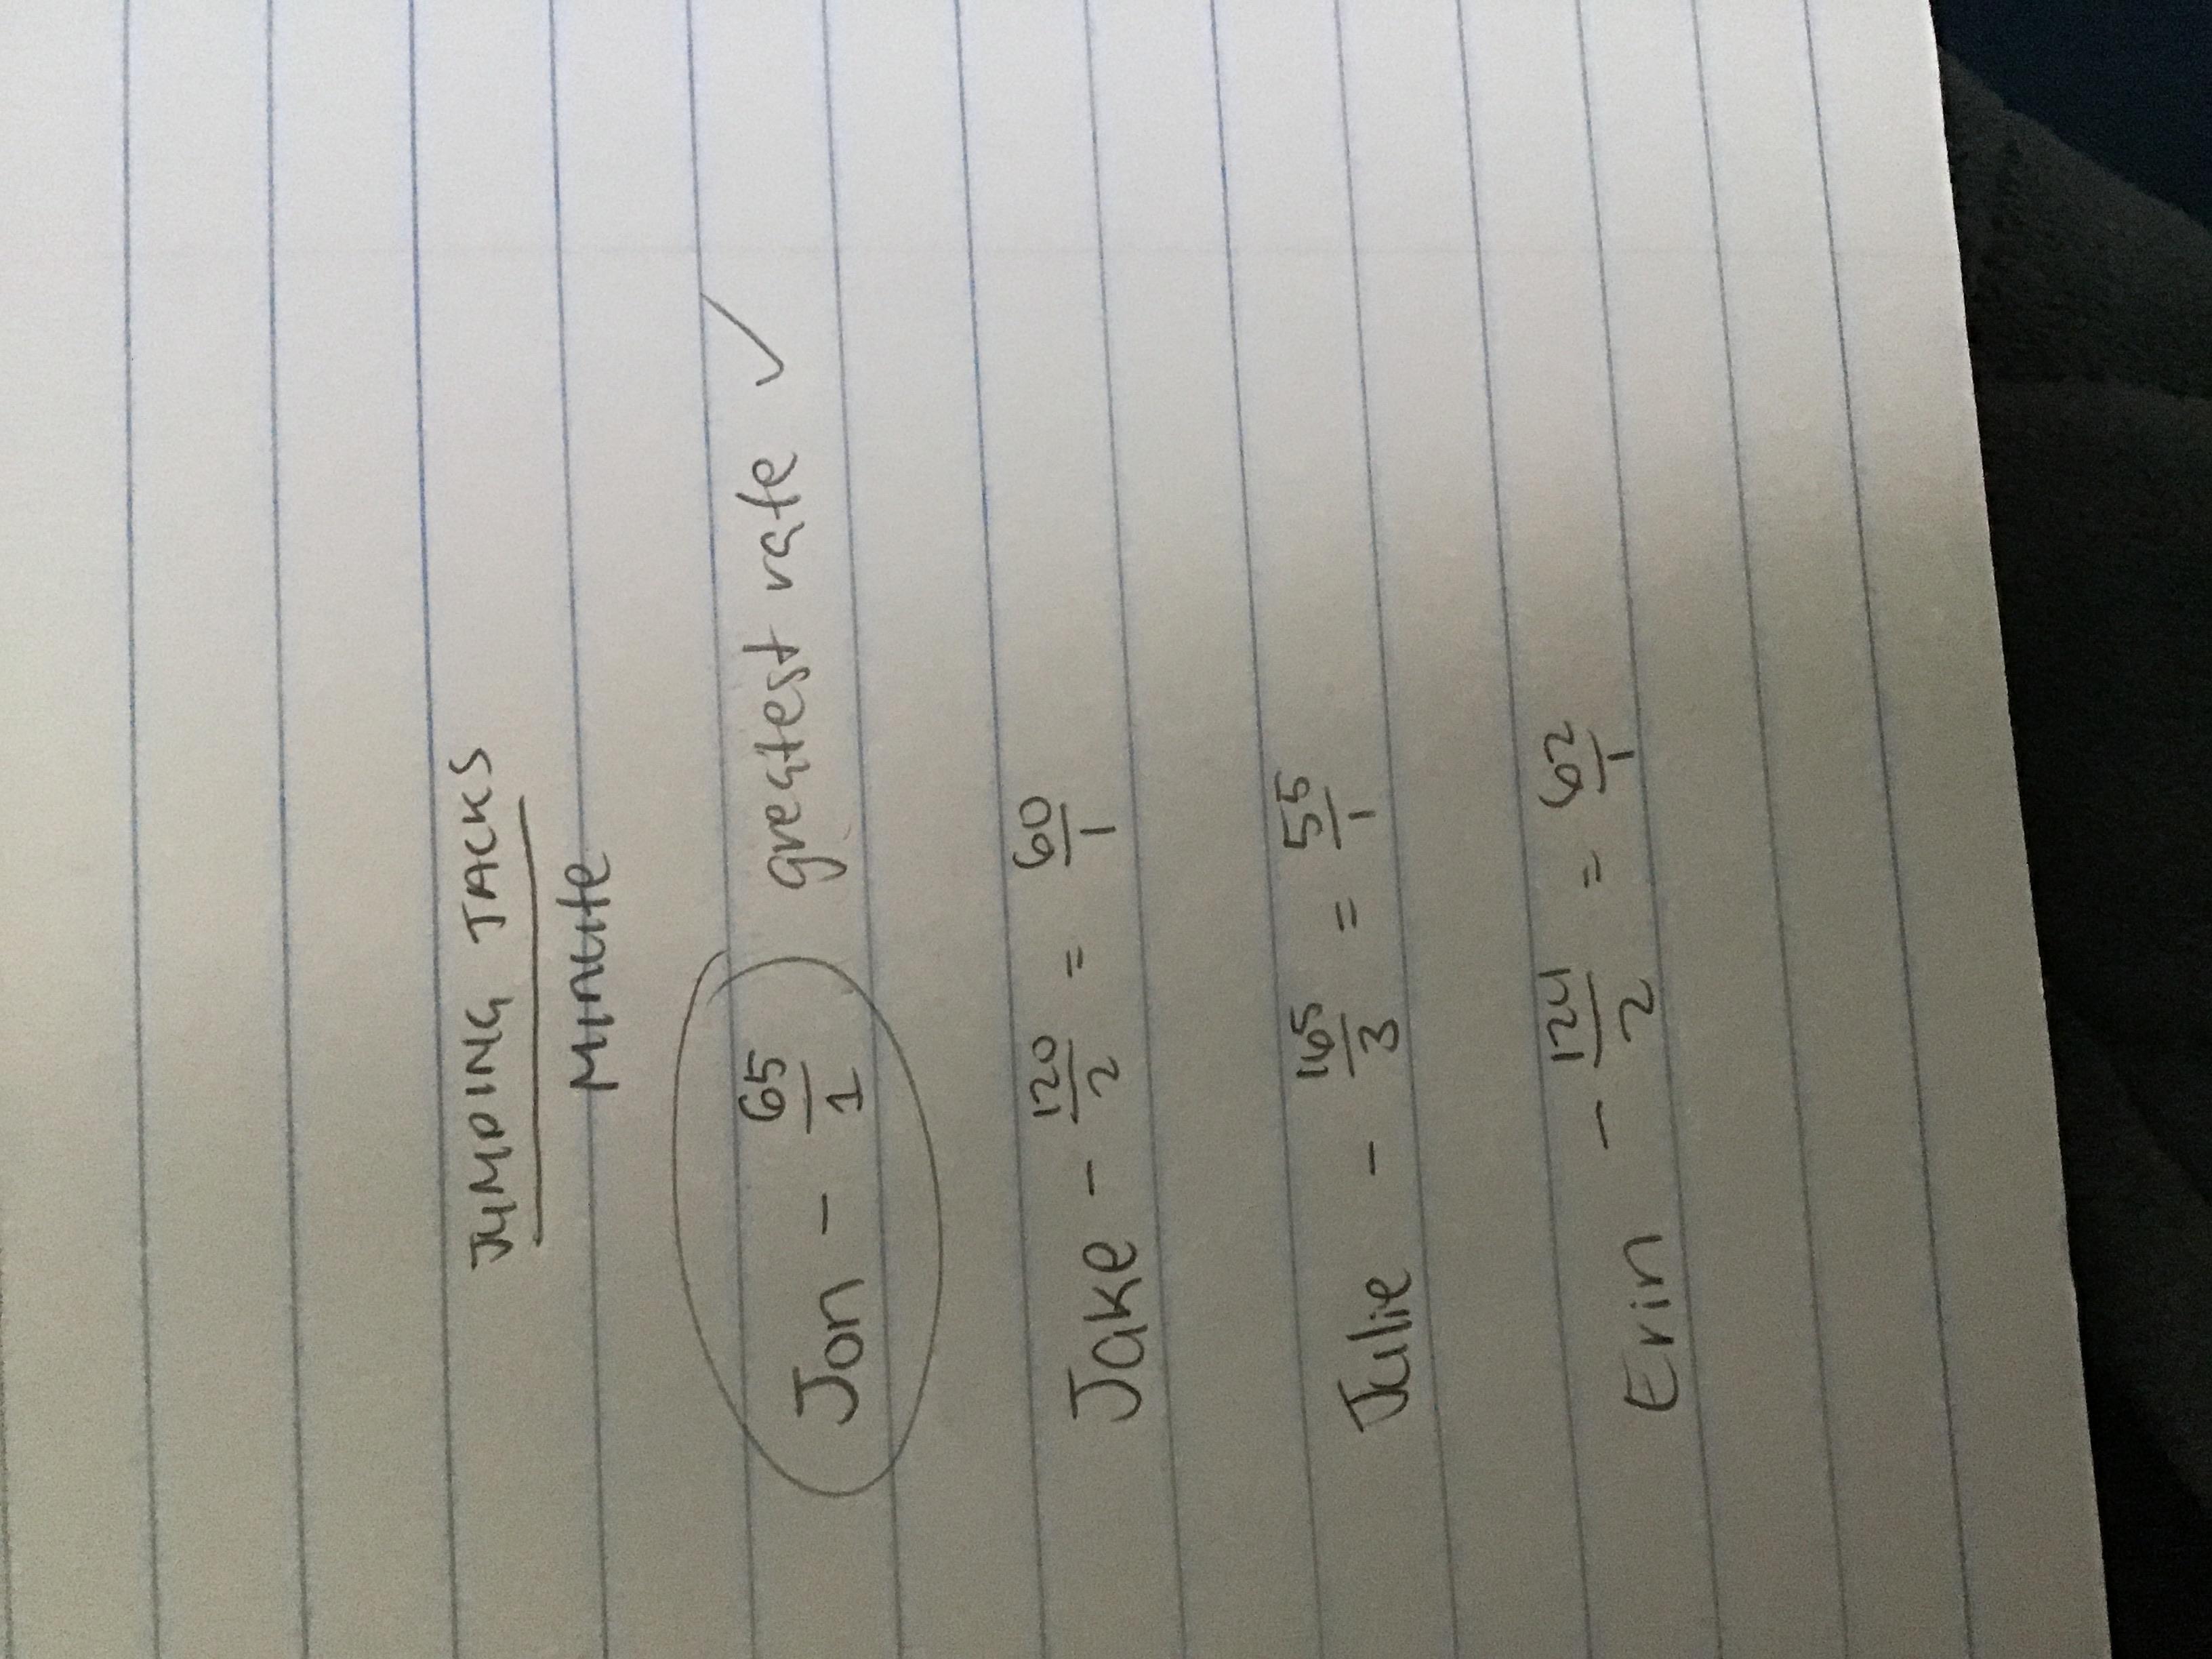 JUMPING JACKS
Minute
Jon - 65/1 greatest rate ✓
Jake - 120/2 = 60/1
Julie - 165/3 = 55/1
Erin - 124/2 = 62/1